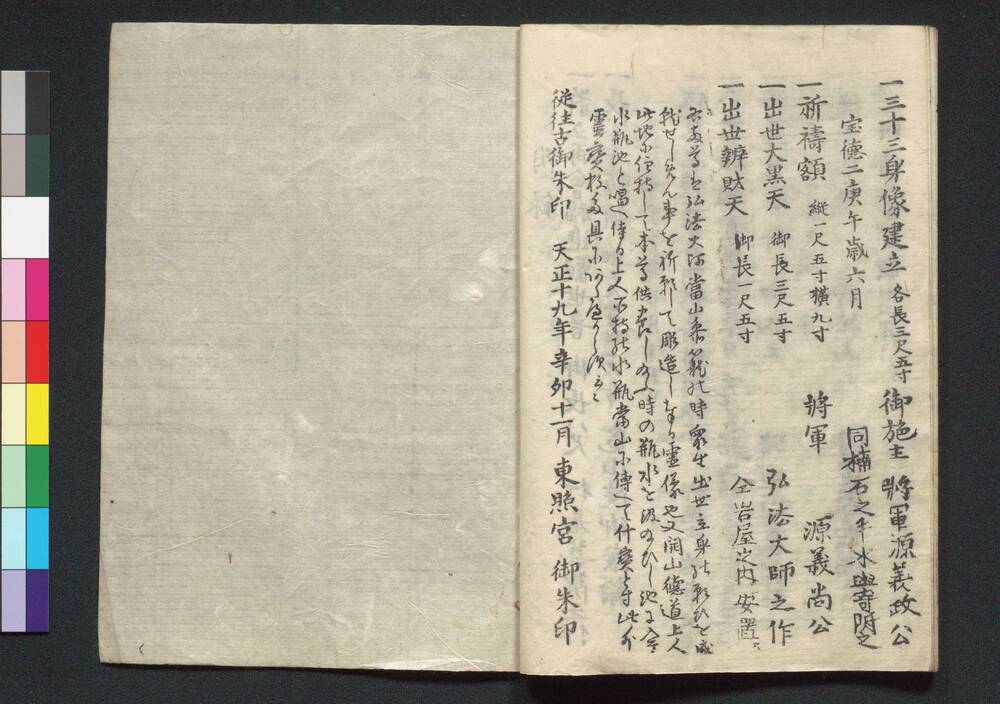 一三十三身像建立 各長三尺五寸 御施主 將軍源義政公
宝徳二庚午歳六月 同楠石之手水鉢寄附之
一祈禱額 縦一尺五寸横九寸 將軍 源義尚公
一出世大黒天 御長三尺五寸 弘法大師之作
一出世辨財天 御長一尺五寸 仝岩屋之内安置ス
右両尊ハ弘法大師當山参籠の時衆生出世立身の願ひを成
就せしめん事を祈願して彫造しある霊像也又開山徳道上人
此地に住持して本尊供養しの時の瓶水を汲のひし池を今
水瓶池と唱へ侍る上人所持の水瓶當山に傳へて什寳とす此外
霊寳枚多具に
從往古御朱印 天正十九年辛卯十一月 東照宮 御朱印